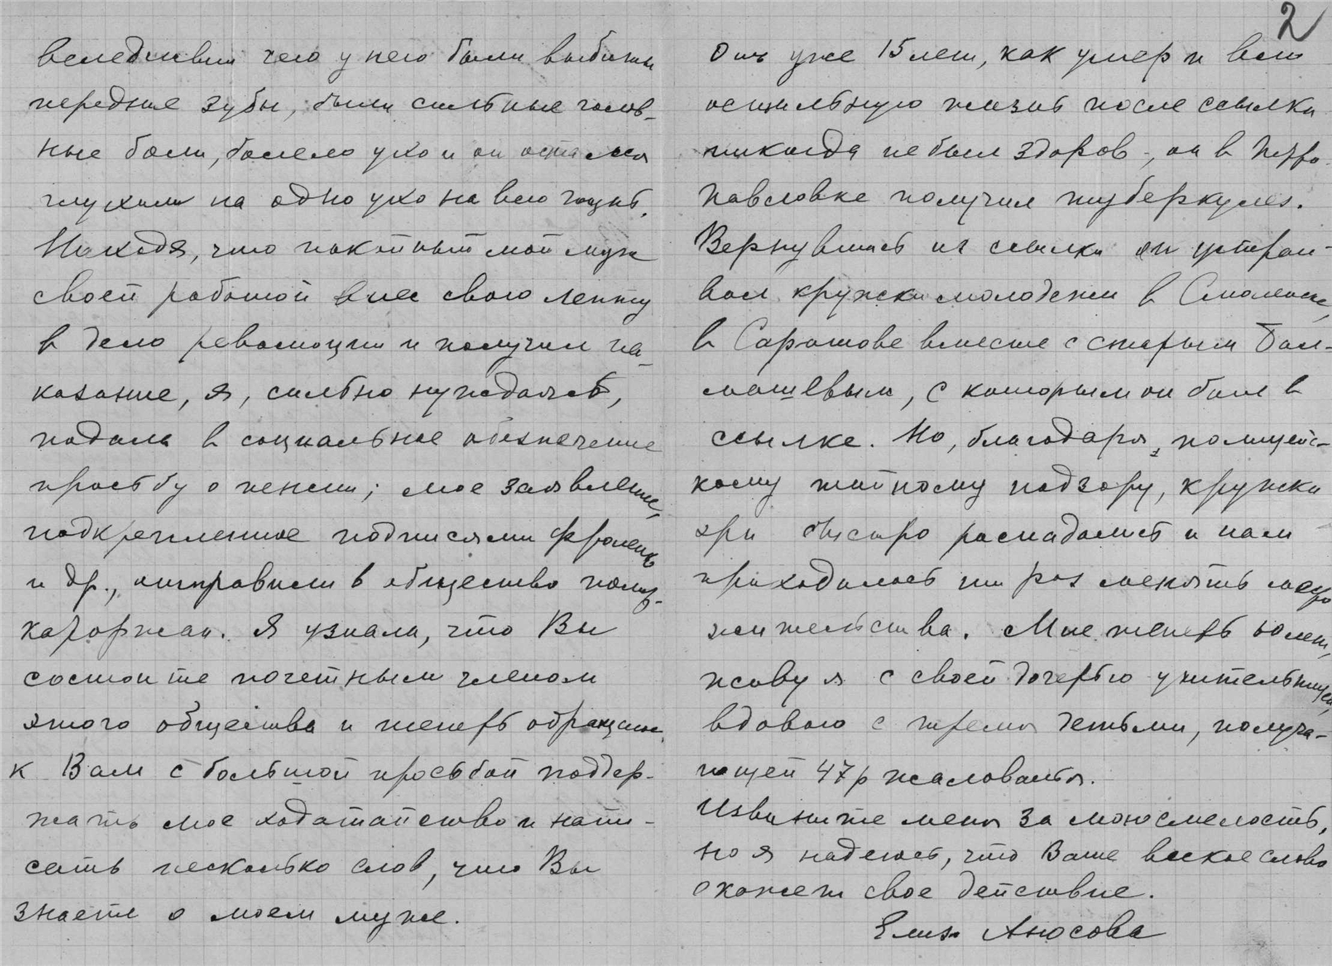 2
вследствии чего у него были выбиты
передние зубы, были сильные голов-
ные боли, болело ухо и он остался
глухим на одно ухо на всю жизнь.
Находя, что покойный мой муж
своей работой внес свою лепту
в дело революции и получил на-
казание, я, сильно нуждаясь,
подала в социальное обезпечение
просьбу о пенсии; мое заявление,
подкрепленное подписями Фроленко
и др., отправили в общество полит-
каторжан. Я узнала, что Вы
состоите почетным членом
этого общества и теперь обращаюсь
к Вам с большой просьбой поддер-
жать мое ходатайство и напи-
сать несколько слов, что Вы
знаете о моем муже.
Он уже 15 лет, как умер и всю
остальную жизнь после ссылки
никогда не был здоров, он в Петро-
павловке получил туберкулез.
Вернувшись из ссылки он устраи-
вал кружки молодежи в Смоленске,
в Саратове вместе с старым Бал-
машевым, с которым он был в
ссылке. Но, благодаря, полицейс-
кому тайному надзору, кружки
эти быстро распадались и нам
приходилось не раз менять место
жительства. Мне теперь лет,
живу я с своей дочерью учительницей,
вдовою с тремя детьми, получа-
ющей 47 р жалованья.
Извините меня за мою смелость,
но я надеюсь, что Ваше веское слово
окажет свое действие.
Елиз. Аносова